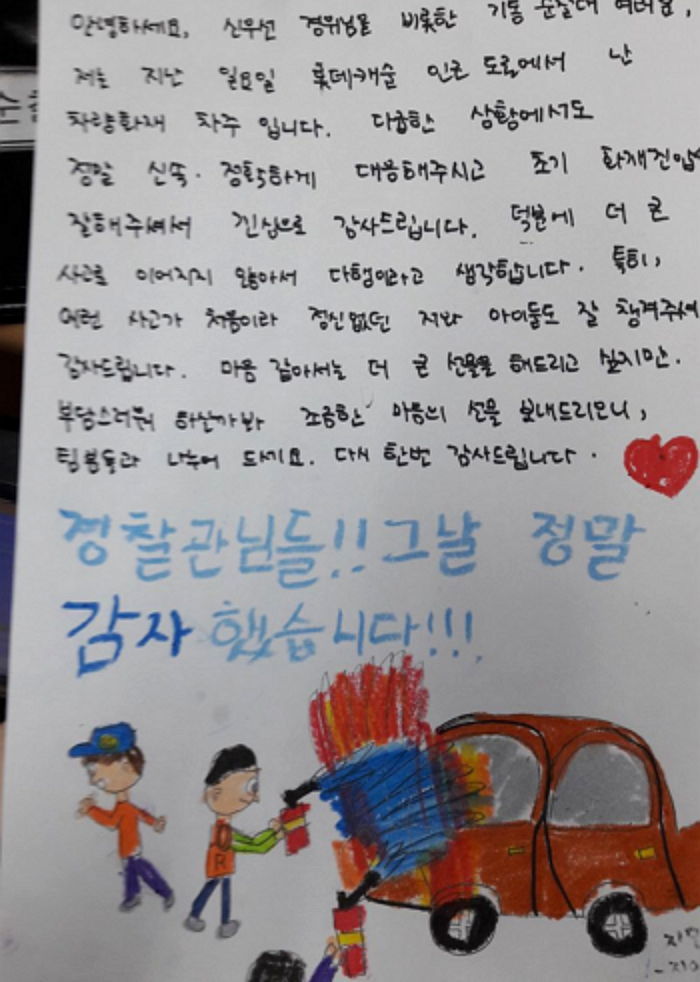 안녕하세요, 신우선 경위님을 비롯한 기동 순찰대 여러분,
저는 지난 일요일 롯데캐슬 인근 도로에서 난
차량화재 차주 입니다. 다급한 상황에서도
정말 신속·정확하게 대응해주시고 초기 화재진압
잘해주셔서 진심으로 감사드립니다. 덕분에 더 큰
사고로 이어지지 않아서 다행이라고 생각합니다. 특히,
이런 사고가 처음이라 정신없던 저와 아이들도 잘 챙겨주셔
감사드립니다. 마음 같아서는 더 큰 선물을 해드리고 싶지만.
부담스러워 하실까봐 조금한 마음의 선물 보내드리오니,
팀원들과 나누어 드세요. 다시 한번 감사드립니다.
경찰관님들!! 그날 정말
감자했습니다!!!
R